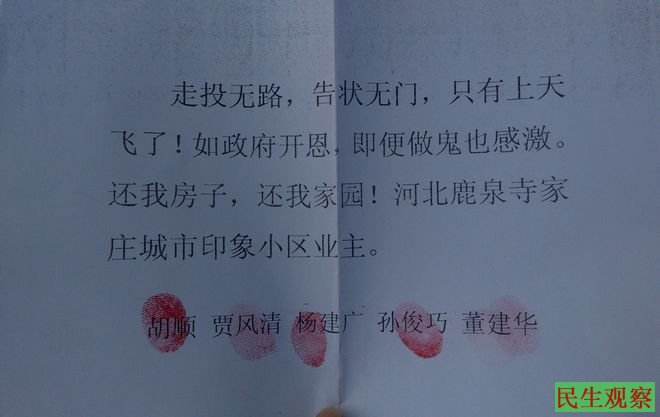 走投无路，告状无门，只有上天
飞了！如政府开恩，即便做鬼也感激。
还我房子，还我家园！河北鹿泉寺家
庄城市印象小区业主。
胡顺 贾风清 杨建广 孙俊巧 董建华
民生观察